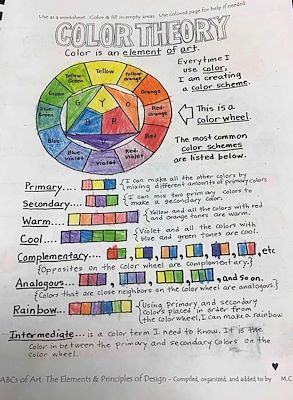 Use as a worksheet. Color & fill in empty areas. Use colored page for help if needed.
COLOR THEORY
Color is an element of art.
Yellow
Yellow-Orange
Orange
Red-Orange
Red
Red-Violet
Violet
Blue-Violet
Blue
Blue-Green
Green
Yellow-Green
Y
O
R
V
B
G
Everytime I
use color,
I am creating
a color scheme.
This is a
color wheel.
The most common
color schemes
are listed below.
Primary....
{I can make all the other colors by
mixing different amounts of primary colors
Secondary....
{I can mix two primary colors to
make a secondary color.
Warm....
{Yellow and all the colors with red
and orange tones are warm.
Cool....
{Violet and all the colors with
blue and green tones are cool.
Complementary...
, etc
{Opposites on the color wheel are complementary.}
Analogous....
, and so on.
{Colors that are close neighbors on the color wheel are analogous.}
Rainbow....
{Using primary and secondary
colors placed in order from
the color wheel, I can make a rainbow
Intermediate ... is a color term I need to know. It is the
color in between the primary and secondary colors on the
color wheel.
ABCs of Art The Elements & Principles of Design – Compiled, organized, and added to by M.C